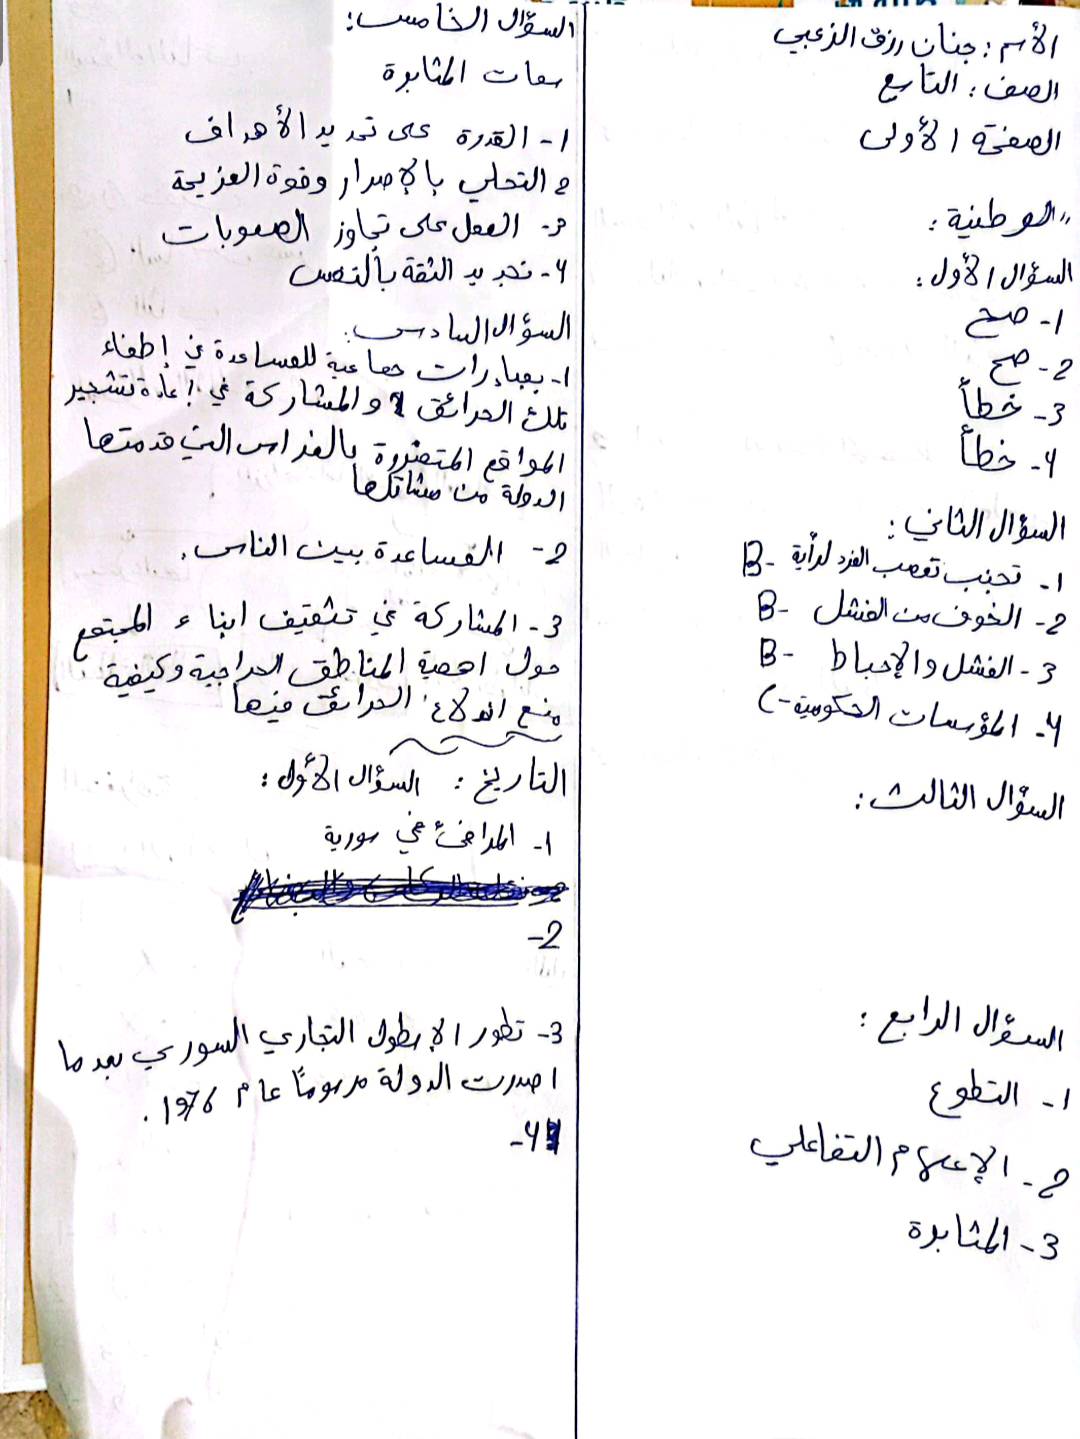 الأسم : جنان رزق الزعبي
الصف : التاسع
الصفحة الأولى
"الوطنية :
السؤال الأول :
1- صح
2- صح
3- خطأ
4- خطأ
السؤال الثاني :
1- تجنب تعصب الفرد لرأية - B
2- الخوف من الفشل - B
3- الفشل والإحباط - B
4- المؤسسات الحكومية - C
السؤال الثالث :
السؤال الرابع :
1- التطوع
2- الإعلام التفاعلي
3- المثابرة
السؤال الخامس :
سمات المثابرة
1- القدرة على تحديد الأهداف
2 التحلي بالإصرار وقوة العزيمة
3- العمل على تجاوز الصعوبات
4- تجديد الثقة بالنفس
السؤال السادس :
1- بمبادرات جماعية للمساعدة في إطفاء
تلك الحرائق والمشاركة في إعادة تشجير
المواقع المتضررة بالغراس التي قدمتها
الدولة من مشاتلها
2- المساعدة بين الناس .
3- المشاركة في تثقيف ابناء المجتمع
حول اهمية المناطق الحراجية وكيفية
منع اندلاع الحرائق فيها
التاريخ : السؤال الأول :
1- المرافئ في سورية
2-
3- تطور الإسطول التجاري السوري بعدما
اصدرت الدولة مرسومًا عام 1976 .
4-